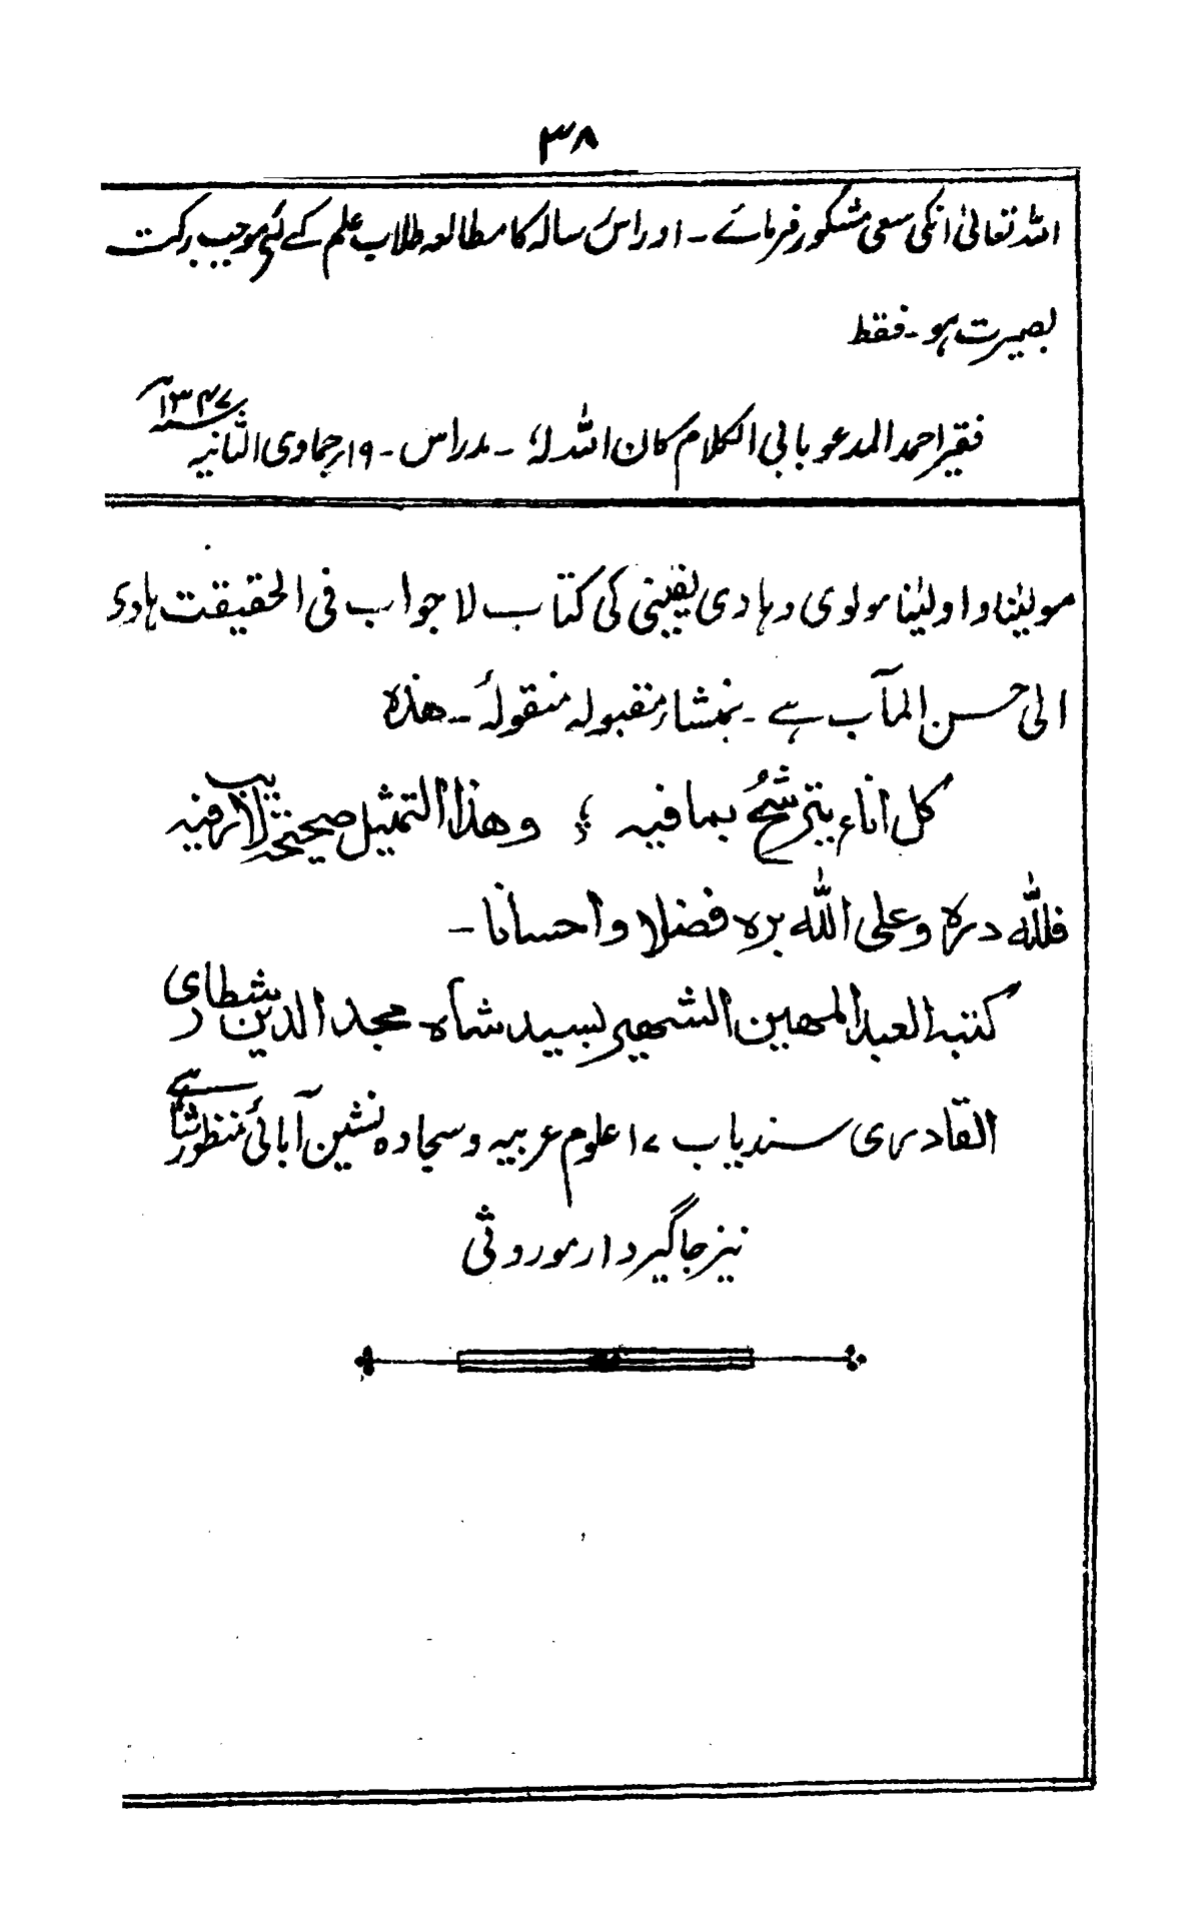 ٣٨
اللہ تعالیٰ انکی سعی مشکور فرمائے ۔ اور اس رسالہ کا مطالعہ طلاب علم کے لئے موجب برکت
بصیرت ہو ۔ فقط
فقیر احمد المدعو بابی الکلام کان اللہ لہٗ ۔ مدراس ۔ ١٩ر جمادی الثانیہ سنہ ١٣٤٧
مولیٰنا و اولیٰنا مولوی و ہادی یقینی کی کتاب لا جواب فی الحقیقت ہادی
الی حسن المآب ہے ۔ بمنشاء مقبولہ منقولہٗ ۔ ھذہ
کل اناء یترشحُ بما فیہ ؛ وھذا التمثیل صحیح لاریب فیہ
فللہ درہ وعلی اللہ برہ فضلا واحسانا ۔
کتبہ العبد المھین الشھیر بسید شاہ مجد الدین شطاری
القادری سند یاب ١٧ علوم عربیہ و سجادہ نشین آبائی
نیز جاگیردار موروثی